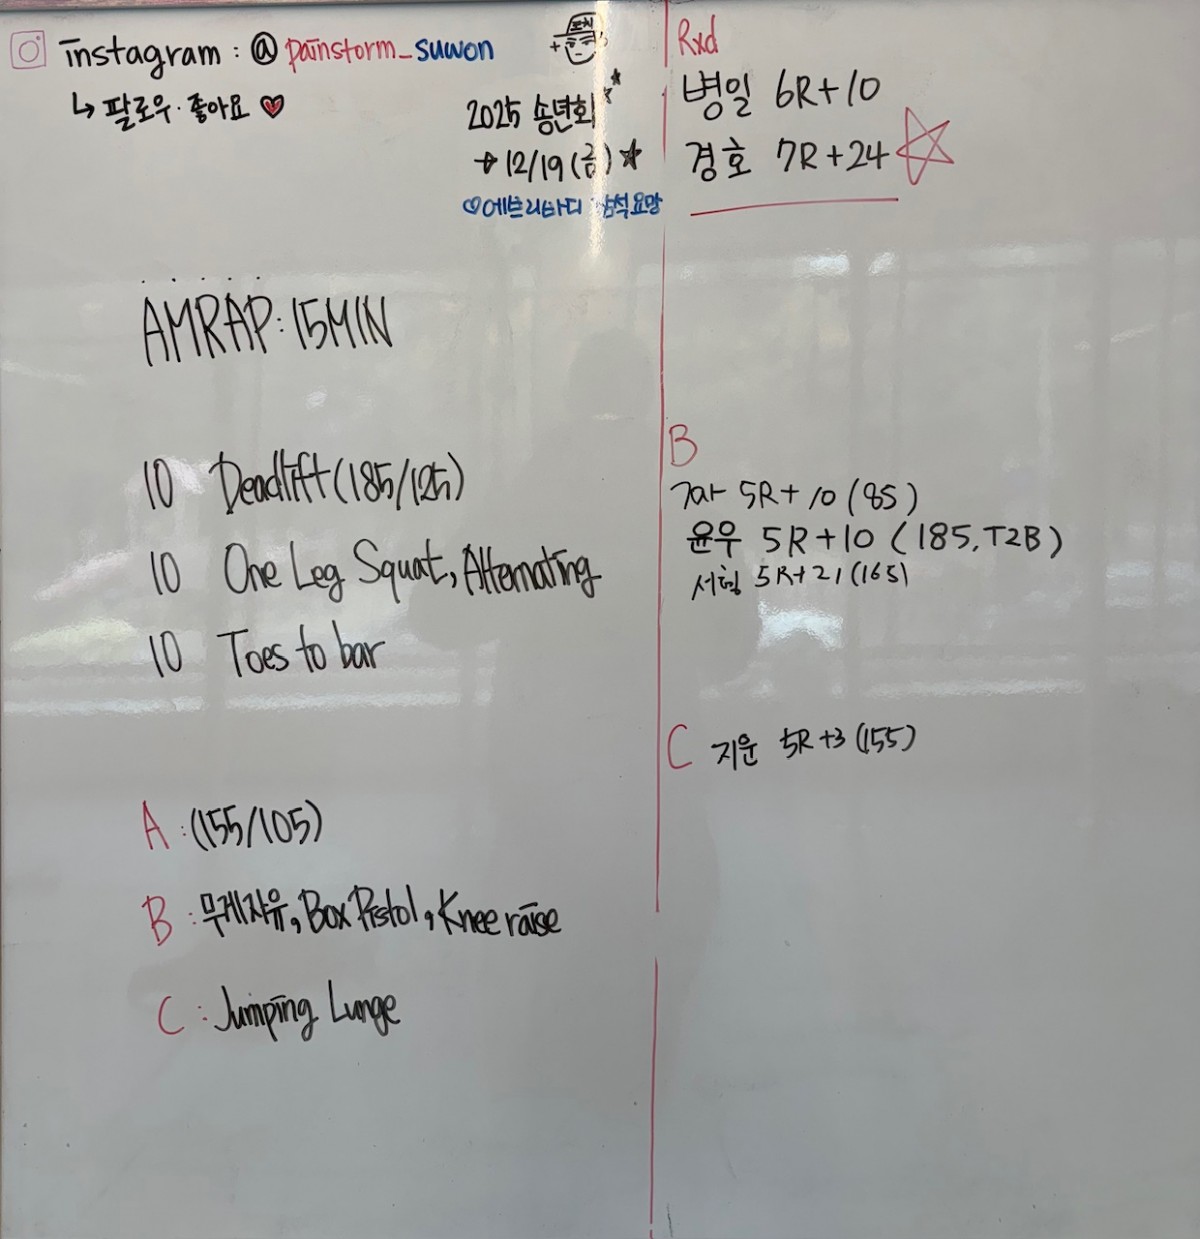 instagram : @ painstorm_suwon
↳ 팔로우·좋아요 ♥
2025 송년회
→ 12/19 (금) ★
♡에브리바디 참석요망
AMRAP: 15MIN
10 Deadlift (185/125)
10 One Leg Squat, Alternating
10 Toes to bar
A : (155/105)
B : 무게자유, Box Pistol, Knee raise
C : Jumping Lunge
Rxd
병일 6R+10
경호 7R+24
B
5R+10 (85)
윤우 5R+10 (185, T2B)
5R+21 (165)
C 지운 5R+3 (155)